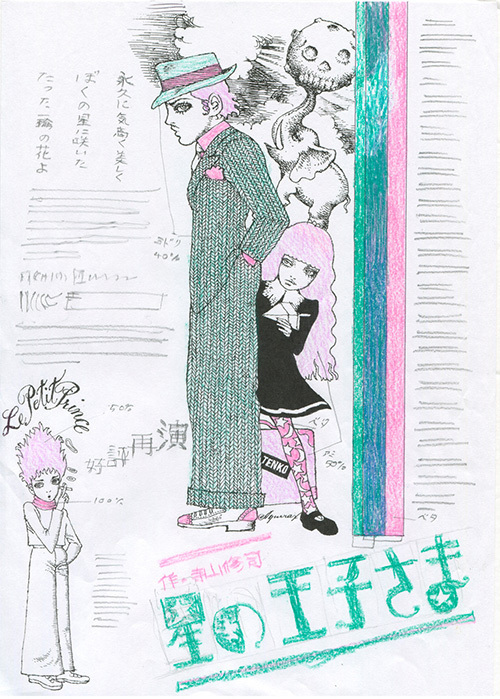 永久に気高く美しく
ぼくの星に咲いた
たった一輪の花よ
ミドリ
40%
Le Petit Prince
50%
好評再演
100%
ベタ
アミ
50%
TENKO
Aquirax
ベタ
作・寺山修司
星の王子さま